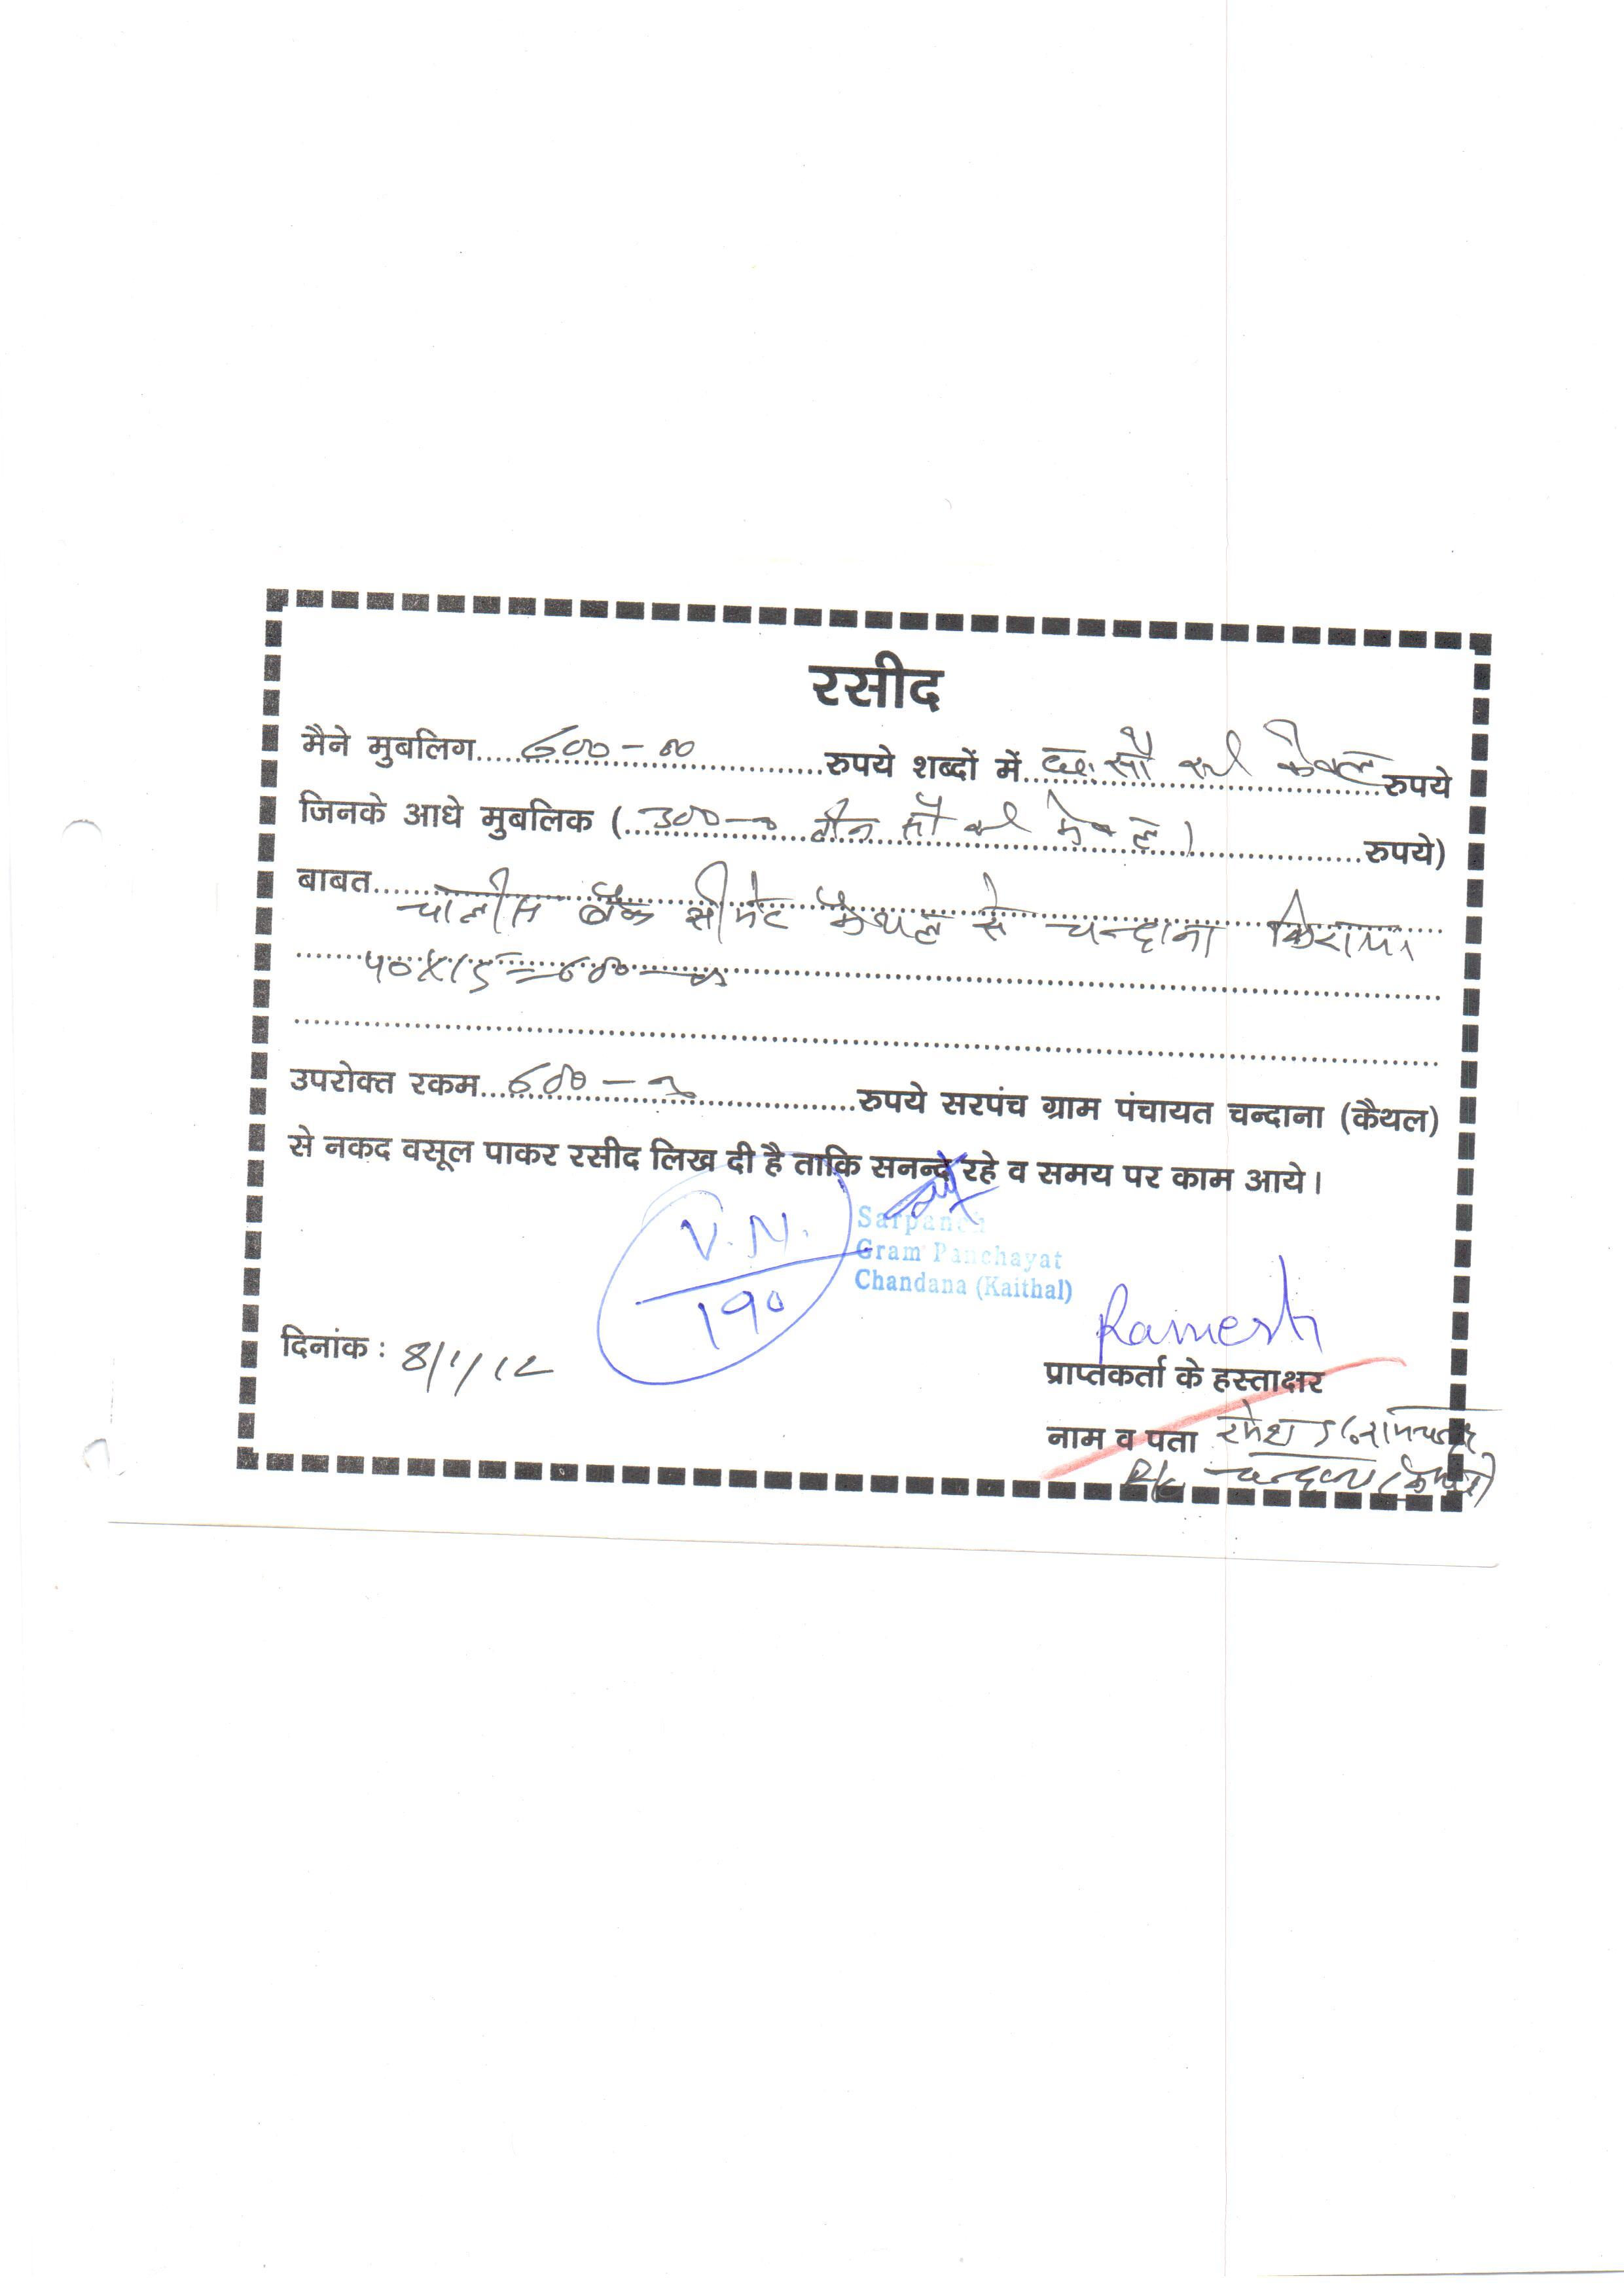 रसीद
मैने मुबलिग 600-00 रुपये शब्दों में छः सौ रू0 केवल रुपये
जिनके आधे मुबलिक (300-0 तीन सौ रू0 केवल) रुपये)
बाबत चालीस बैग सीमेंट कैथल से चन्दाना किराया
४०X15=600-00
उपरोक्त रकम 600-00 रुपये सरपंच ग्राम पंचायत चन्दाना (कैथल)
से नकद वसूल पाकर रसीद लिख दी है ताकि सनन्द रहे व समय पर काम आये।
V.N.
190
Sarpanch
Gram Panchayat
Chandana (Kaithal)
Ramesh
दिनांक : 8/1/12
प्राप्तकर्ता के हस्ताक्षर
नाम व पता रमेश S/o रामचन्द्र
R/o चन्दाना (कैथल)